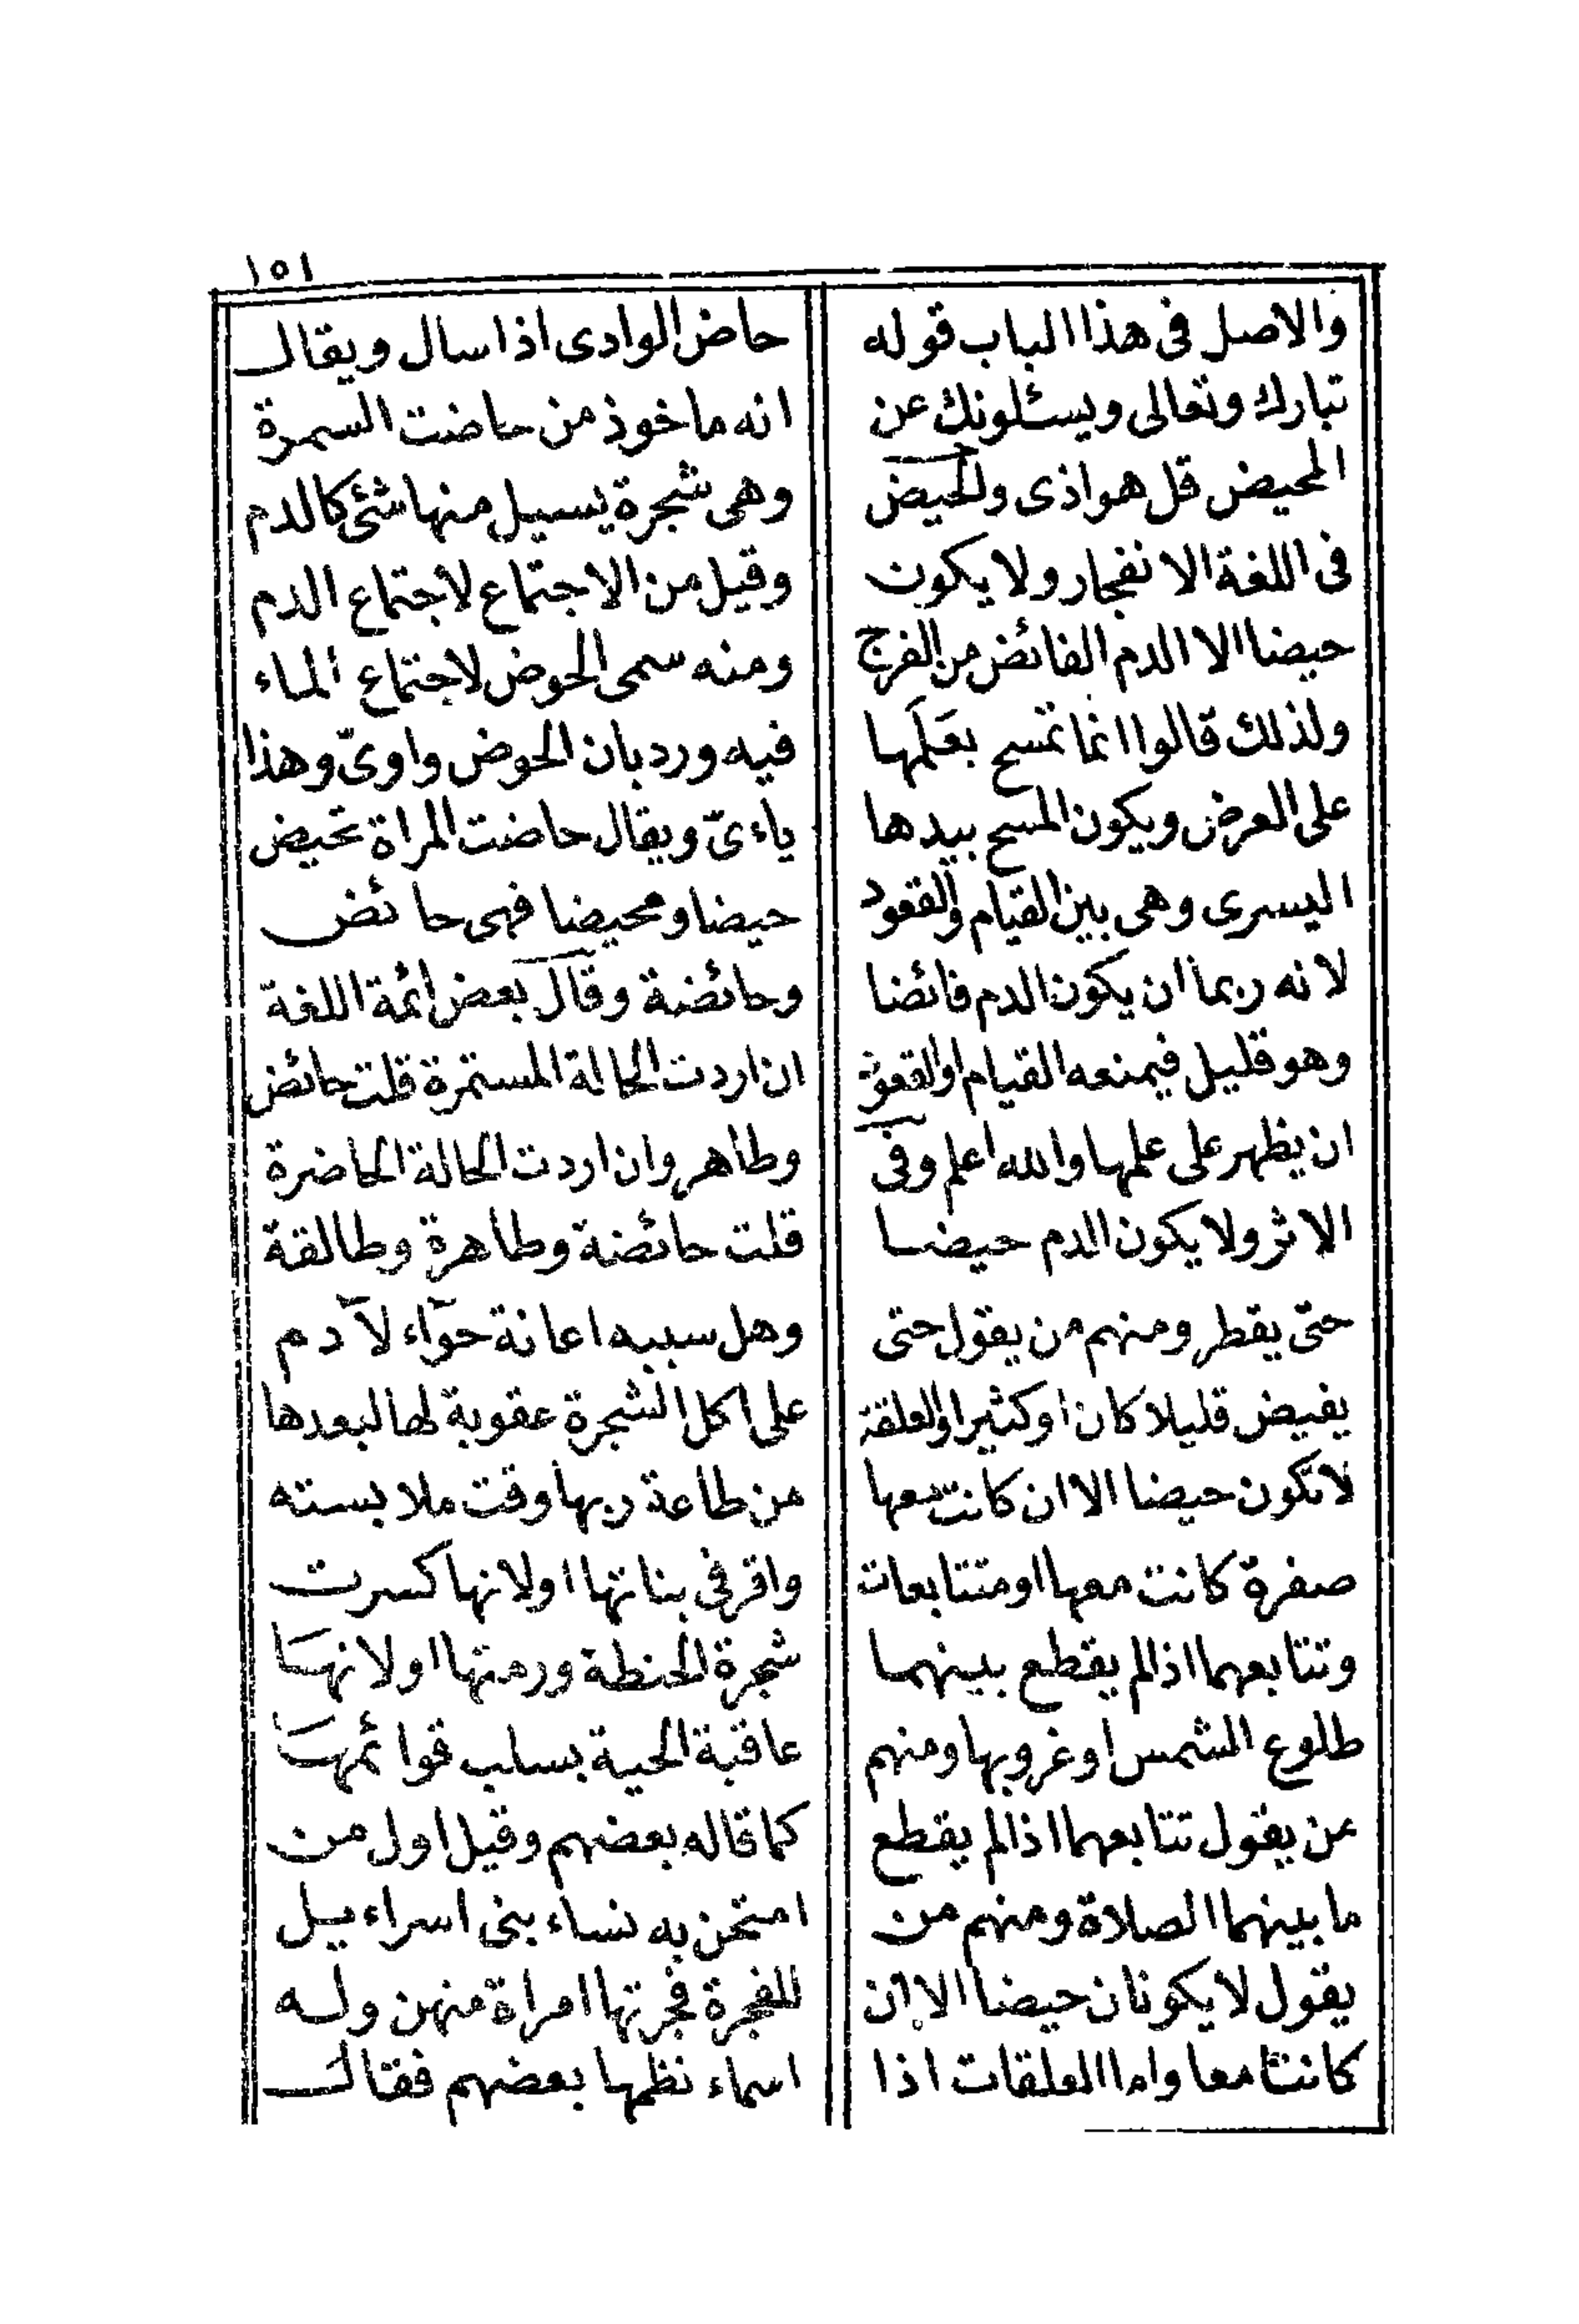 ١٥١
والاصل فى هذا الباب قوله
تبارك وتعالى ويسئلونك عن
المحيض قل هو اذى والحيض
فى اللغة الانفجار ولا يكون
حيضا الا الدم الفائض من الفرج
ولذلك قالوا انما تمسح بعَلَمها
على العرض ويكون المسح بيدها
اليسرى وهى بين القيام والقعود
لانه ربما ان يكون الدم فائضا
وهو قليل فيمنعه القيام او القعود
ان يظهر على علمها والله اعلم وفى
الاثر ولا يكون الدم حيضا
حتّى يقطر ومنهم من يقول حتى
يفيض قليلا كان او كثيرا والعلقة
لا تكون حيضا الا ان كانت معها
صفرة كانت معها او متتابعات
وتتابعهما اذا لم يقطع بينهما
طلوع الشمس او غروبها ومنهم
من يقول تتابعهما اذا لم يقطع
ما بينهما الصلاة ومنهم من
يقول لا يكونان حيضا الا ان
كانتا معا واما العلقات اذا
حاض الوادى اذا سال ويقال
انه ماخوذ من حاضت السمرة
وهى شجرة يسيل منها شئ كالدم
وقيل من الاجتماع لاجتماع الدم
ومنه سمى الحوض لاجتماع الماء
فيه ورد بان الحوض واوىّ وهذا
ياءىّ ويقال حاضت المراة تحيض
حيضا ومحيضا فهى حائض
وحائضة وقال بعض ائمة اللغة
ان اردت الحالة المستمرة قلت حائض
وطاهر وان اردت الحالة الحاضرة
قلت حائضة وطاهرة وطالقة
وهل سببه اعانة حوّآء لآدم
على اكل الشجرة عقوبة لها لبعدها
من طاعة ربها وقت ملابسته
واقر فى بناتها اولانها كسرت
شجرة الحنطة ورمتها اولانهَا
عاقبة الحية بسلب قوائمهَا
كما قاله بعضهم وقيل اول من
امتحن به نساء بنى اسراءيل
للفجرة فجرتها امراة منهن وله
اسماء نظمها بعضهم فقال